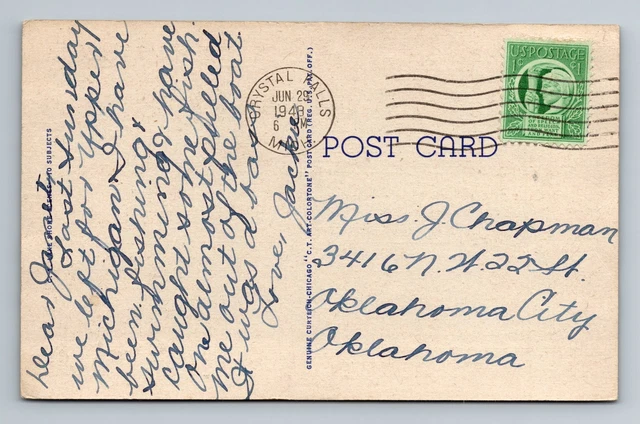 Dear Janet,
Last Sunday
we left for Upper
Michigan. I have
been fishing &
swimming & have
caught some fish.
One almost pulled
me out of the boat
It was a bass.
Love, Jackie
CRYSTAL FALLS
JUN 29
1943
6 PM
MICH.
U.S. POSTAGE
1¢
POST CARD
GENUINE CURTEICH-CHICAGO "C.T. ART-COLORTONE" POST CARD (REG. U.S. PAT. OFF.)
Miss J. Chapman
3416 N.W. 22 St.
Oklahoma City
Oklahoma